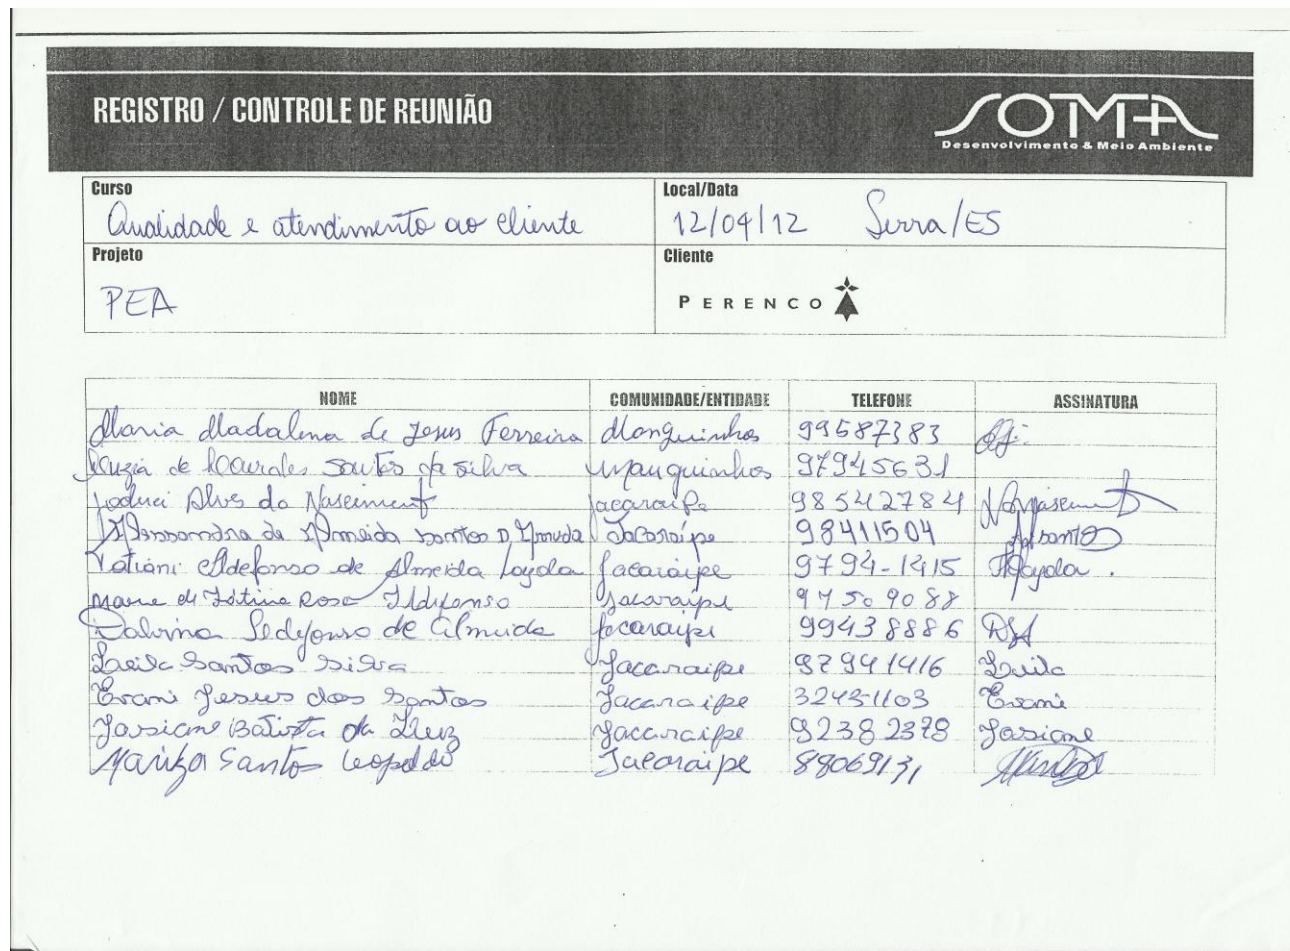 REGISTRO / CONTROLE DE REUNIÃO
SOMA
Desenvolvimento & Meio Ambiente
Curso Local/Data
Qualidade e atendimento ao cliente 12/04/12 Serra/ES
Projeto Cliente
PEA PERENCO
NOME COMUNIDADE/ENTIDADE TELEFONE ASSINATURA
Maria Madalena de Jesus Ferreira Manguinhos 99587383
Luzia de Lourdes Santos da Silva Manguinhos 97945631
Alves do Nascimento Jacaraípe 98542784 Nascimento
Alessandra de Almeida Santos D Jacaraípe 98411504
Tatiani Ildefonso de Almeida Loyola Jacaraípe 9794-1415
Maria de Fátima Rosa Ildefonso Jacaraípe 97509088
Dalvina de Almeida Jacaraípe 99438886 DSA
Leila Santos Silva Jacaraipe 97941416 Leila
Evani Jesus dos Santos Jacaraipe 32431103 Evani
Josiane Batista da Luz Jacaraipe 92382378 Josiane
Mariza Santos Leopoldo Jacaraipe 88069131